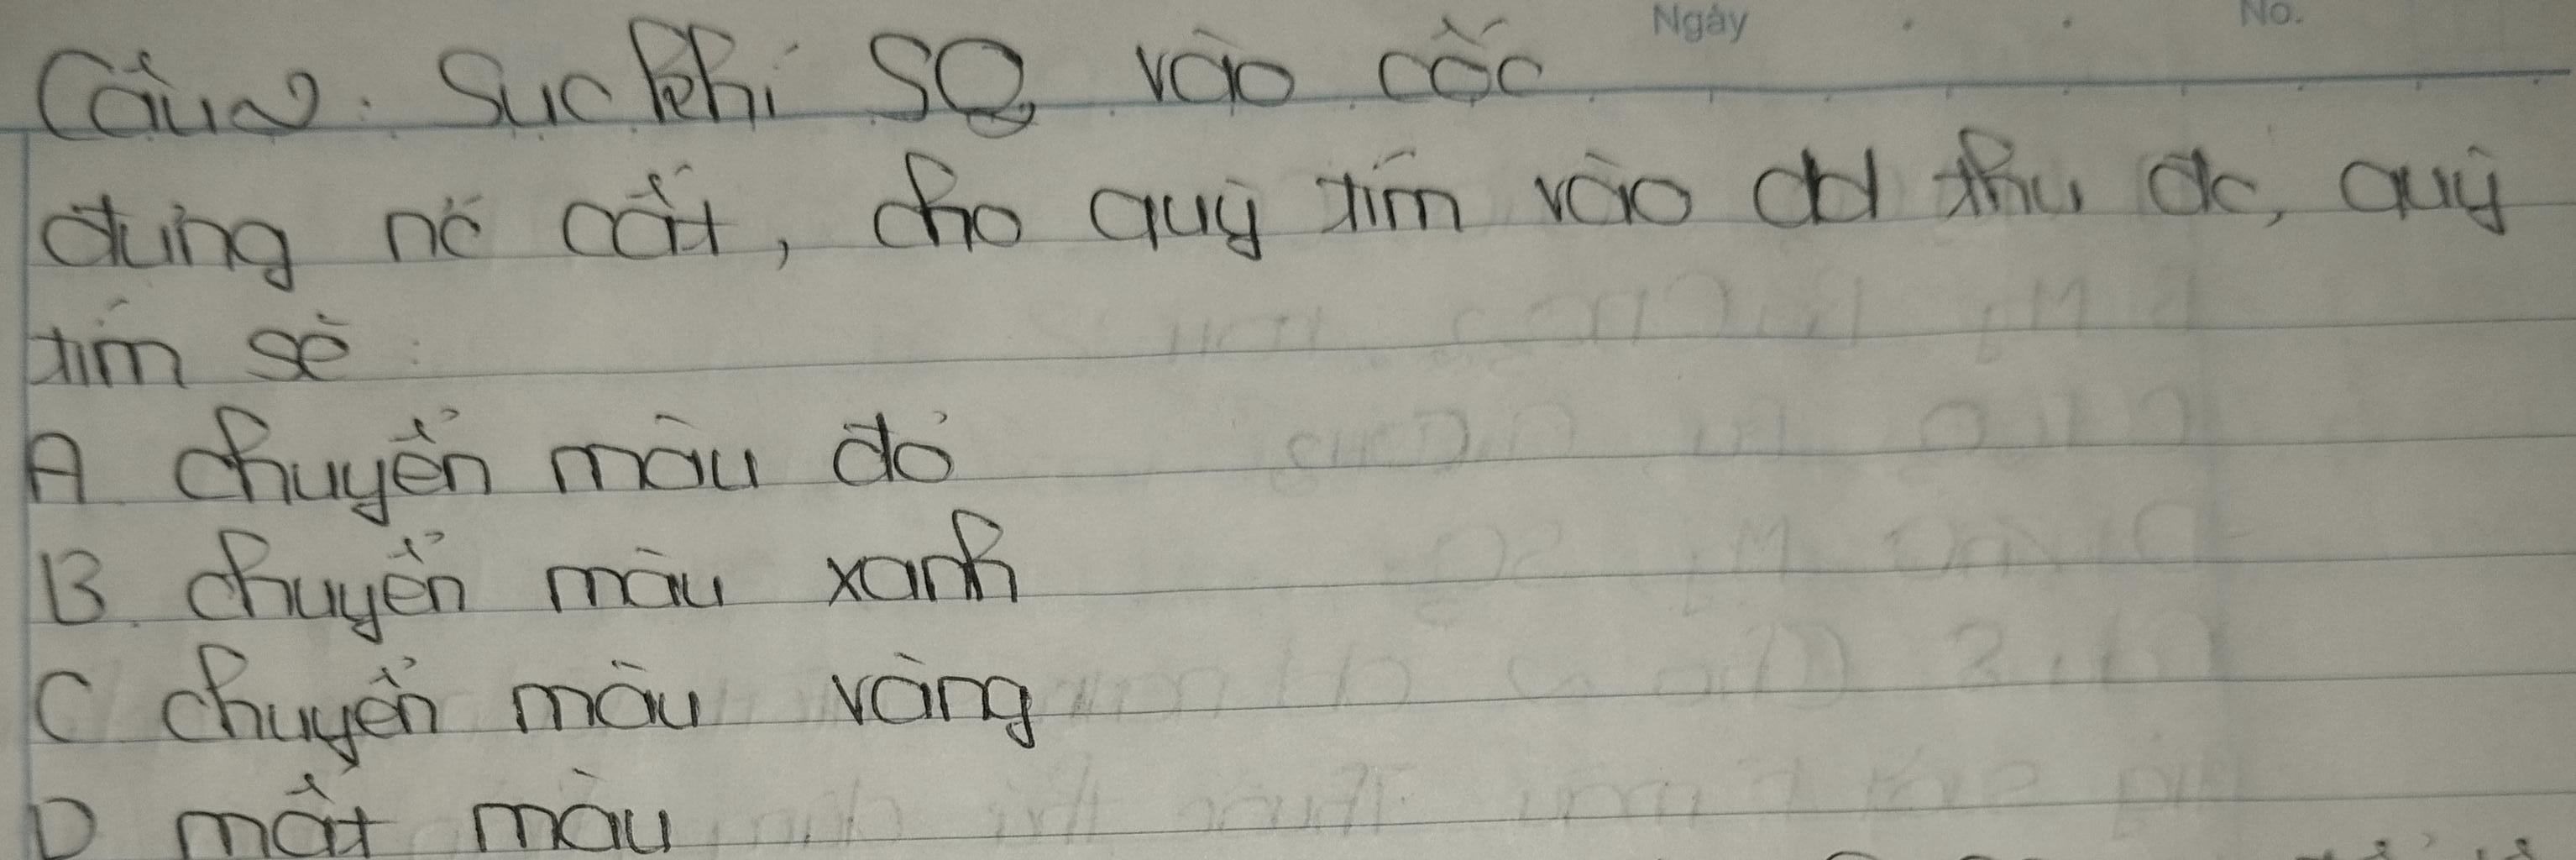 Ngày . . No.
Câu 2: Sục khí SO2 vào cốc
đựng nc cất, cho quỳ tím vào dd thu đc, quỳ
tím sẽ:
A chuyển màu đỏ
B. chuyển màu xanh
C chuyển màu vàng
D mất màu